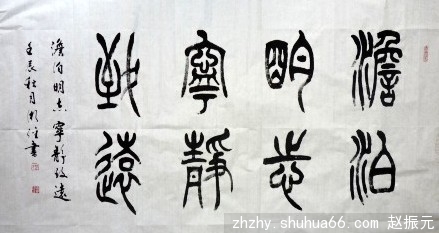 澹泊
明志
寧靜
致遠
澹泊明志寧靜致遠
壬辰秋月
zhzhy.shuhua66.com 赵振元